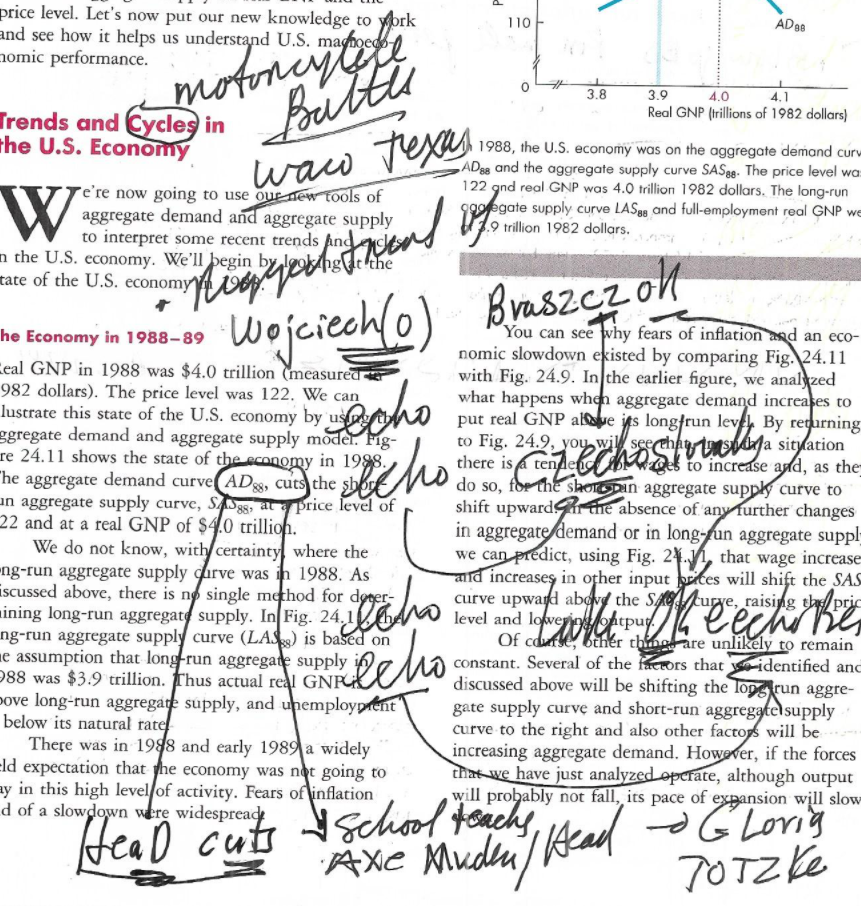 price level. Let's now put our new knowledge to work
and see how it helps us understand U.S. macroeco-
nomic performance.
motorcycle
Battles
Waco Texas
Trends and Cycles in
the U.S. Economy
We're now going to use our new tools of
aggregate demand and aggregate supply
to interpret some recent trends and cycles
n the U.S. economy. We'll begin by looking at the
tate of the U.S. economy in 1988.
of
Wojciech(o)
he Economy in 1988–89
Real GNP in 1988 was $4.0 trillion (measured in
982 dollars). The price level was 122. We can
llustrate this state of the U.S. economy by using the
ggregate demand and aggregate supply model. Fig-
re 24.11 shows the state of the economy in 1988.
The aggregate demand curve, AD88, cuts the short-
un aggregate supply curve, SAS88, at a price level of
22 and at a real GNP of $4.0 trillion.
echo
echo
We do not know, with certainty, where the
ong-run aggregate supply curve was in 1988. As
iscussed above, there is no single method for deter-
mining long-run aggregate supply. In Fig. 24.11, the
ng-run aggregate supply curve (LAS88) is based on
he assumption that long-run aggregate supply in
988 was $3.9 trillion. Thus actual real GNP is
bove long-run aggregate supply, and unemployment
below its natural rate.
echo
echo
There was in 1988 and early 1989 a widely
eld expectation that the economy was not going to
ay in this high level of activity. Fears of inflation
nd of a slowdown were widespread.
P
110
0
AD88
3.8 3.9 4.0 4.1
Real GNP (trillions of 1982 dollars)
In 1988, the U.S. economy was on the aggregate demand curv
AD88 and the aggregate supply curve SAS88. The price level wa
122 and real GNP was 4.0 trillion 1982 dollars. The long-run
aggregate supply curve LAS88 and full-employment real GNP we
3.9 trillion 1982 dollars.
Braszczok
You can see why fears of inflation and an eco-
nomic slowdown existed by comparing Fig. 24.11
with Fig. 24.9. In the earlier figure, we analyzed
what happens when aggregate demand increases to
put real GNP above its long-run level. By returning
to Fig. 24.9, you will see that in such a situation
there is a tendency for wages to increase and, as they
do so, for the short-run aggregate supply curve to
shift upward. In the absence of any further changes
in aggregate demand or in long-run aggregate suppl
we can predict, using Fig. 24.11, that wage increase
and increases in other input prices will shift the SAS
curve upward above the SAS88 curve, raising the pric
level and lowering output.
Czechoslovak
Lake Okeechobee
Of course, other things are unlikely to remain
constant. Several of the factors that we identified and
discussed above will be shifting the long-run aggre-
gate supply curve and short-run aggregate supply
curve to the right and also other factors will be
increasing aggregate demand. However, if the forces
that we have just analyzed operate, although output
will probably not fall, its pace of expansion will slow
HeaD cuts
School
AXe Murder/Head
GLoria
TOTZKe